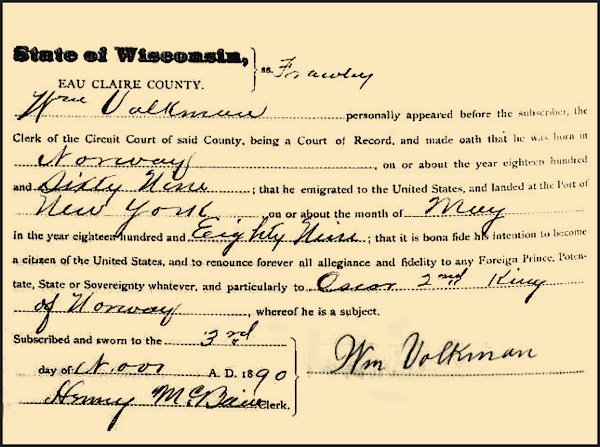 State of Wisconsin,
EAU CLAIRE COUNTY.
ss. Frawley
Wm Volkman personally appeared before the subscriber, the
Clerk of the Circuit Court of said County, being a Court of Record, and made oath that he was born in
Norway, on or about the year eighteen hundred
and Sixty Nine; that he emigrated to the United States, and landed at the Port of
New York on or about the month of May
in the year eighteen hundred and Eighty Nine; that it is bona fide his intention to become
a citizen of the United States, and to renounce forever all allegiance and fidelity to any Foreign Prince, Poten-
tate, State or Sovereignty whatever, and particularly to Oscar 2nd King
of Norway, whereof he is a subject.
Subscribed and sworn to the 3rd
day of A. D. 1890
Henry McBain Clerk.
Wm Volkman